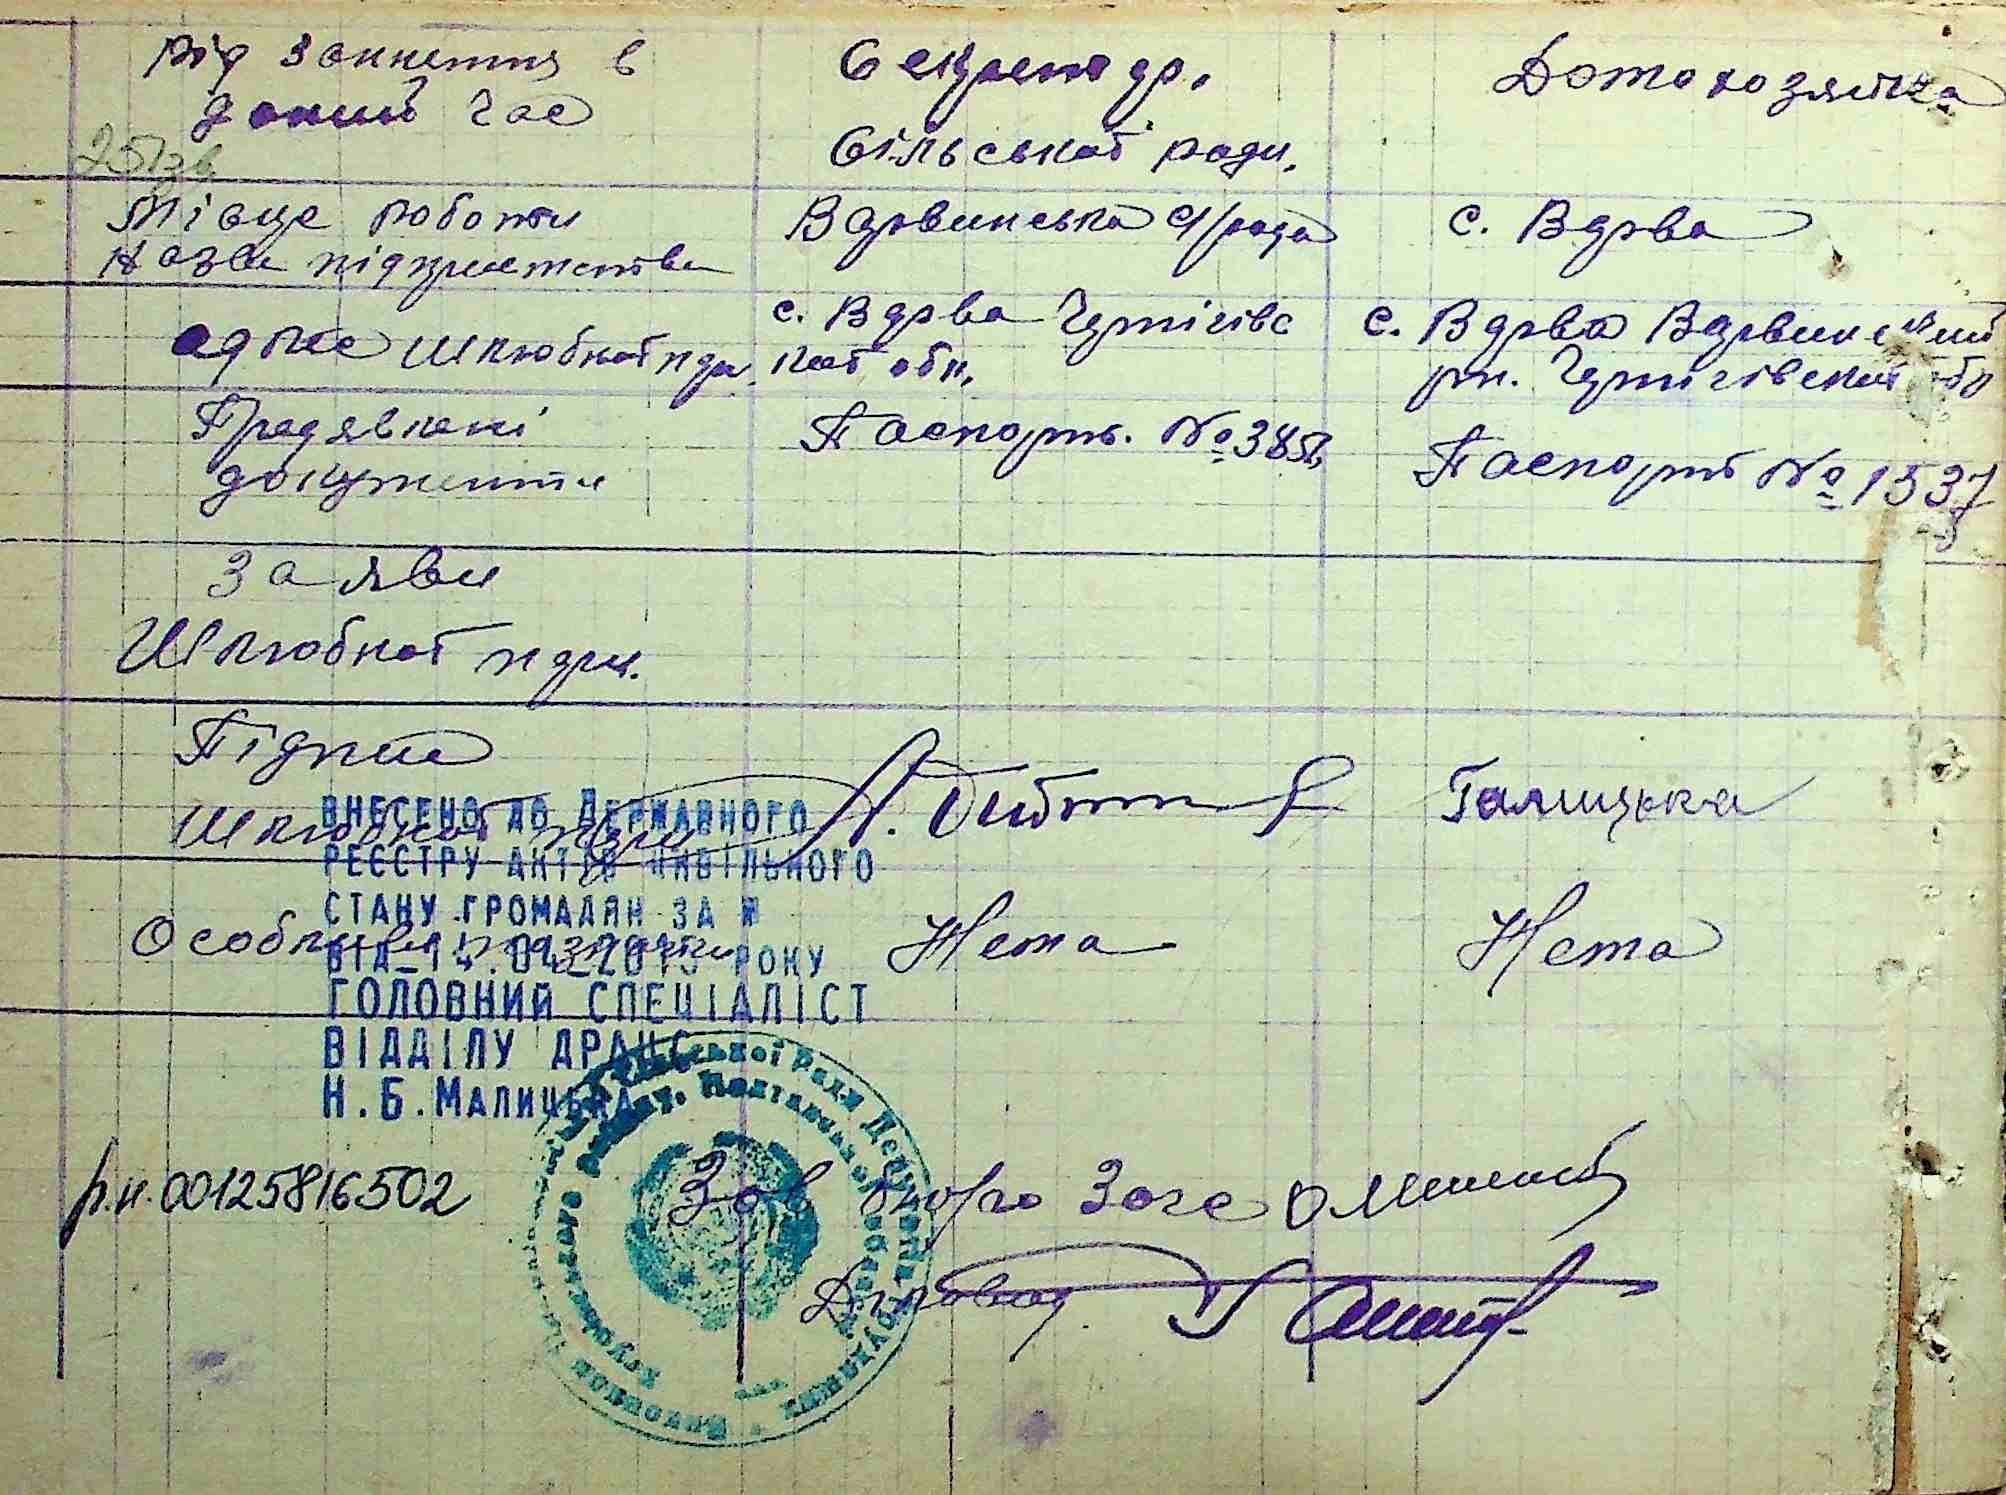 Рід заняття в
даний час
Секретар.
Сільської ради.
Домохозяйка
257зв
Місце роботи
Назва підприємства
Варвинська с/рада
с. Варва
адрес шлюбної пари.
с. Варва Чернігівс
кої обл.
с. Варва Варвинский
рн. Чернігівскої обл
Предявлені
документи
Паспорть. №
Паспорт № 1537
Заяви
Шлюбної пари.
Підпис
Шлюбної пари
Галицька
Особливі
Нема
Нема
ВНЕСЕНО ДО ДЕРЖАВНОГО
РЕЄСТРУ АКТІВ ЦИВІЛЬНОГО
СТАНУ ГРОМАДЯН ЗА №
ВІД 14.04.2015 РОКУ
ГОЛОВНИЙ СПЕЦІАЛІСТ
ВІДДІЛУ ДРАЦС
Н.Б.МАЛИЦЬКА
р.н. 00125816502
Зав бюро Загс
Діловод